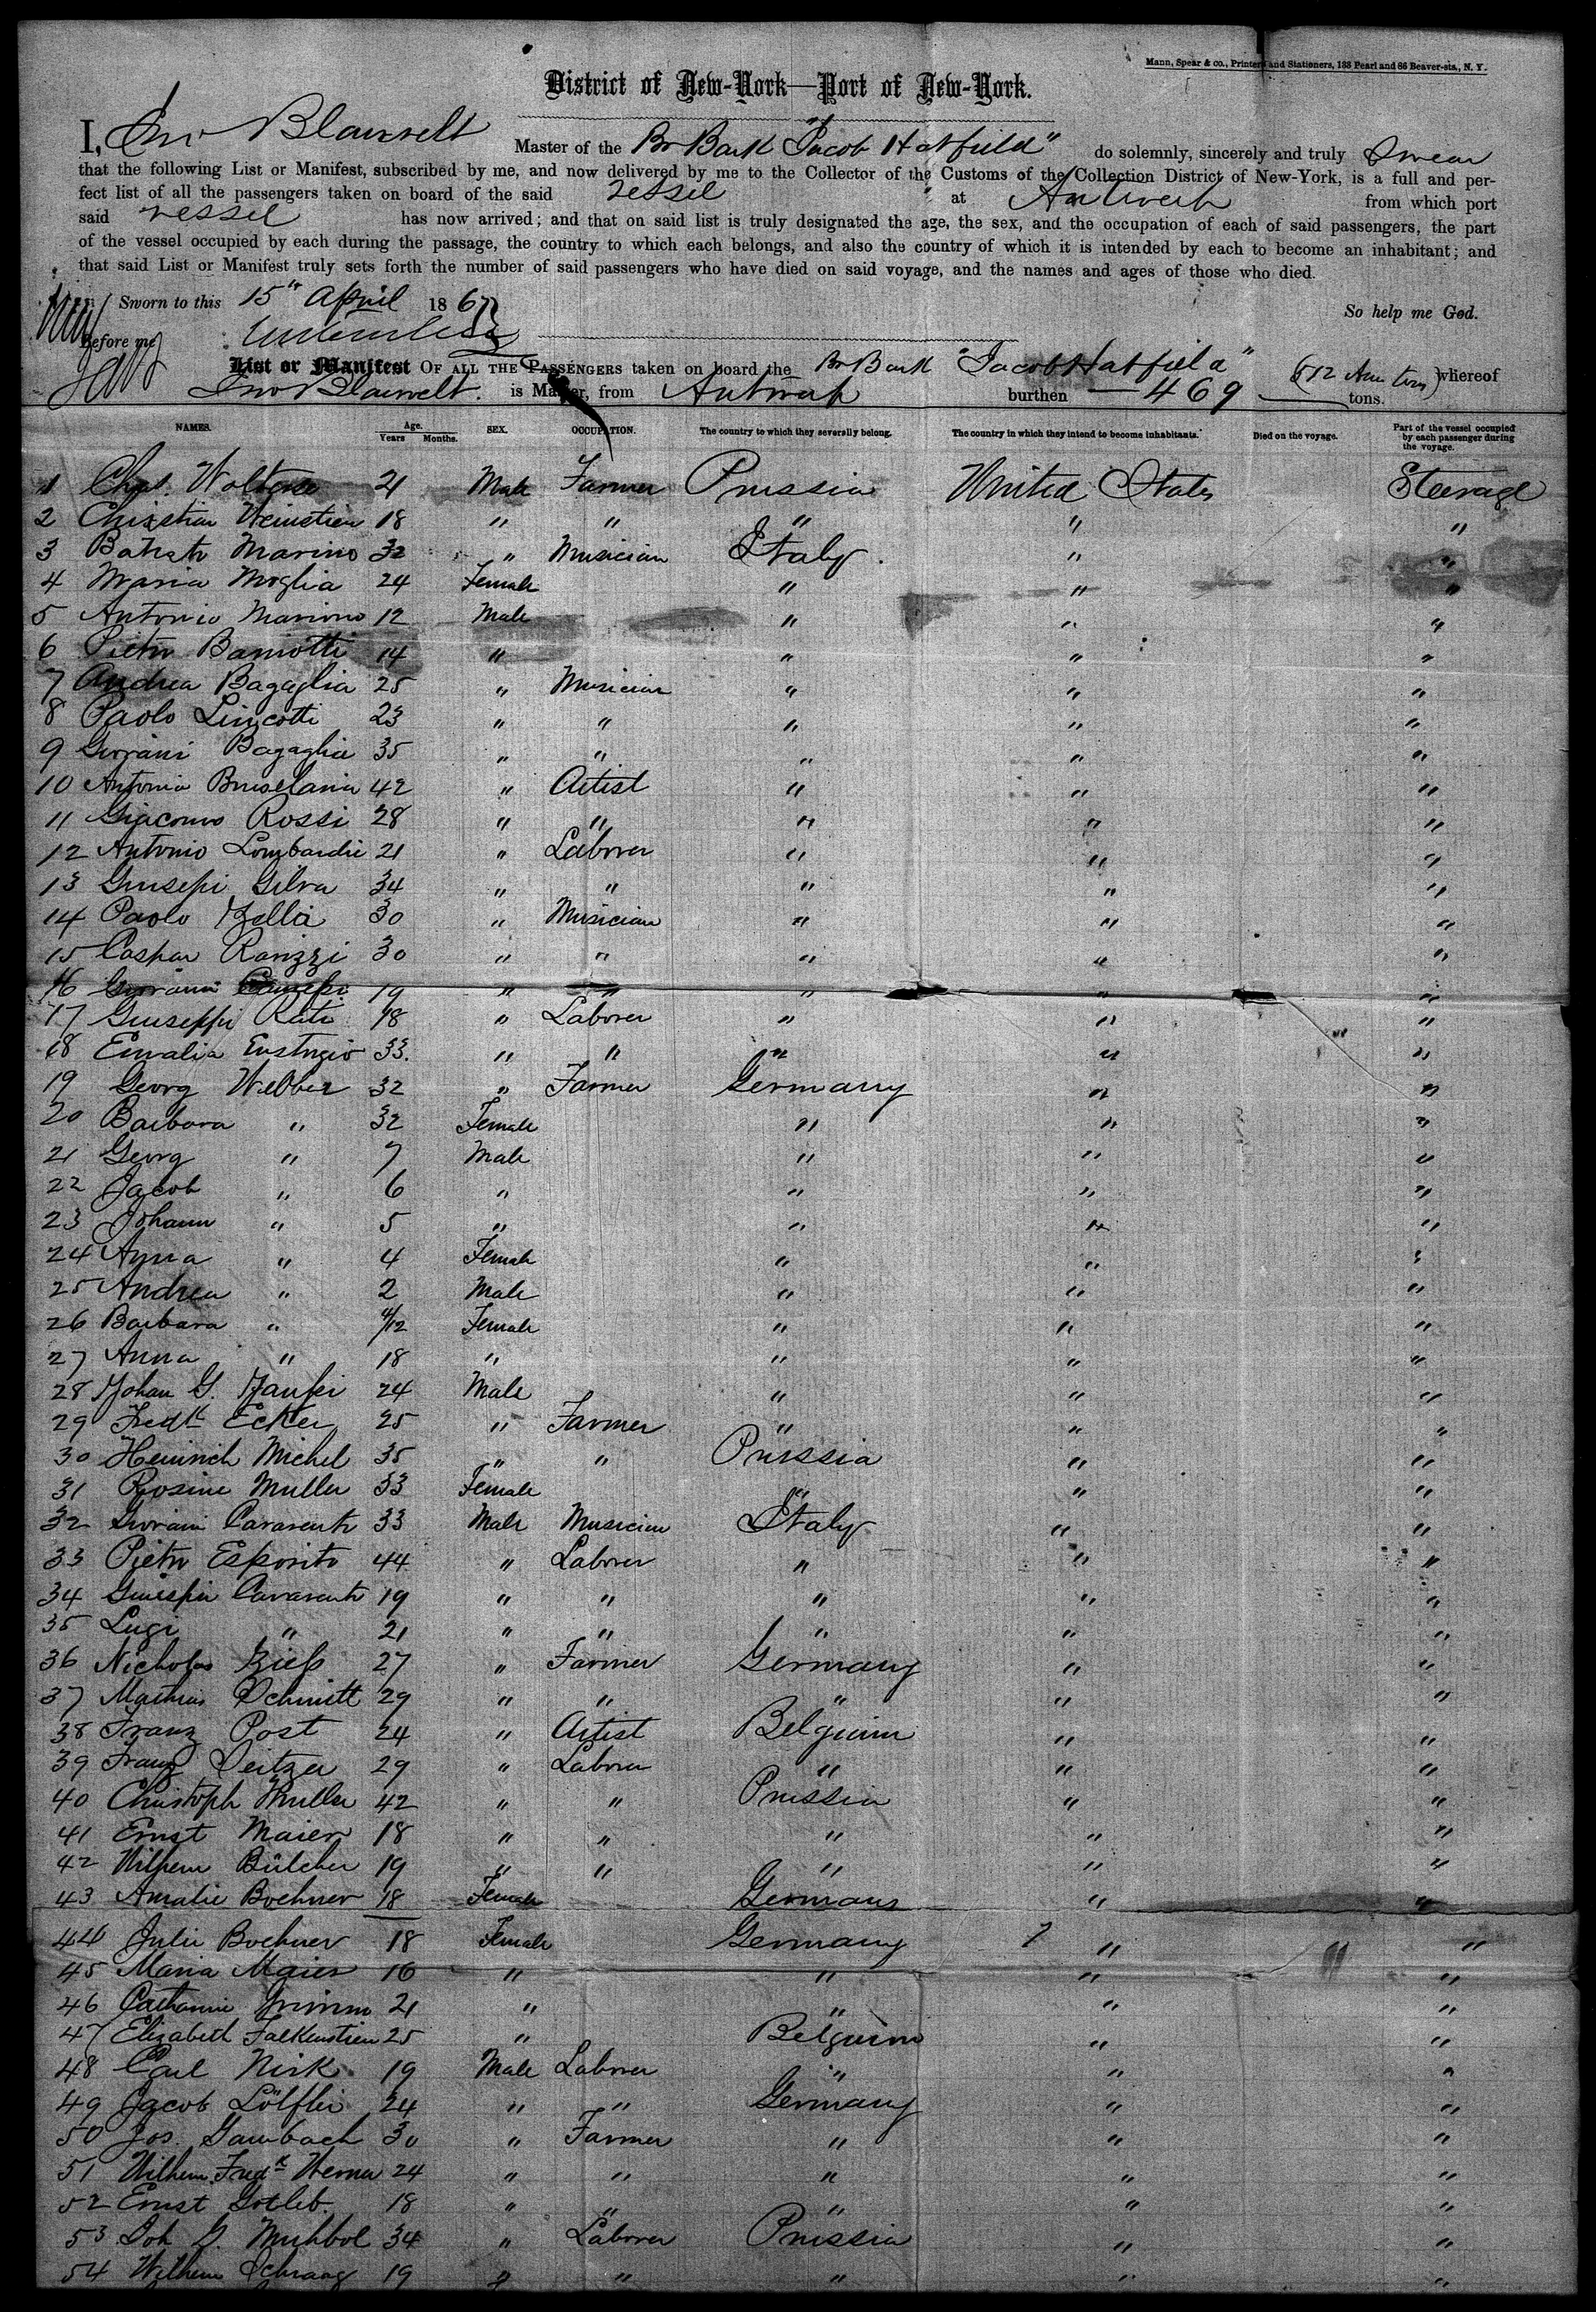 Mann, Spear & co., Printers and Stationers, 188 Pearl and 86 Beaver-sts., N. Y.
District of New-York—Port of New-York.
I, Jno Blauvelt Master of the Br Bark "Jacob Hatfield" do solemnly, sincerely and truly Swear
that the following List or Manifest, subscribed by me, and now delivered by me to the Collector of the Customs of the Collection District of New-York, is a full and per-
fect list of all the passengers taken on board of the said vessel at Antwerp from which port
said vessel has now arrived; and that on said list is truly designated the age, the sex, and the occupation of each of said passengers, the part
of the vessel occupied by each during the passage, the country to which each belongs, and also the country of which it is intended by each to become an inhabitant; and
that said List or Manifest truly sets forth the number of said passengers who have died on said voyage, and the names and ages of those who died.
Sworn to this 15" April 1867 So help me God.
Before me
List or Manifest OF ALL THE PASSENGERS taken on board the Br Bark "Jacob Hatfield" whereof
Jno Blauvelt. is Master, from Antwerp burthen 469 tons.
NAMES. Age. Years Months. SEX. OCCUPATION. The country to which they severally belong. The country in which they intend to become inhabitants. Died on the voyage. Part of the vessel occupied by each passenger during the voyage.
1 Chas. 21 Male Farmer Prussia United States Steerage
2 Christian Weinstien 18 " " " " "
3 Marino 32 " Musician Italy. " "
4 Maria Moglia 24 Female " " "
5 Antonio Marino 12 Male " " "
6 Pietro 14 " " " "
7 Andrea Bagaglia 25 " Musician " " "
8 Paolo Lincotti 23 " " " " "
9 Giovani Bagaglia 35 " " " " "
10 Antonio 42 " Artist " " "
11 Giacomo Rossi 28 " " " " "
12 Antonio Lombardie 21 " Laborer " " "
13 Giusepi Gilva 34 " " " " "
14 Paolo Zella 30 " Musician " " "
15 Caspar Ranzzi 30 " " " " "
16 Giovanni 19 " " " " "
17 Giuseppi Rati 18 " Laborer " " "
18 Emalia 33. " " " " "
19 Georg Webber 32 " Farmer Germany " "
20 Barbara " 32 Female " " "
21 Georg " 7 Male " " "
22 Jacob " 6 " " " "
23 Johann " 5 " " " "
24 Anna " 4 Female " " "
25 Andrea " 2 Male " " "
26 Barbara " 4/12 Female " " "
27 Anna " 18 " " " "
28 Johan G. 24 Male " " "
29 Fredk Ecker 25 " Farmer " " "
30 Heinrich Michel 35 " " Prussia " "
31 Rosine Muller 33 Female " " "
32 Giovani 33 Male Musician Italy " "
33 Pietro Esposito 44 " Laborer " " "
34 19 " " " " "
35 Lugi " 21 " " " " "
36 Nicholas 27 " Farmer Germany " "
37 Mathias Schmitt 29 " " " " "
38 Franz Post 24 " Artist Belgium " "
39 Franz Deitzer 29 " Laborer " " "
40 Christoph Muller 42 " " Prussia " "
41 Ernst Maier 18 " " " " "
42 Wilhem Bülcher 19 " " " " "
43 Amalie Boehner 18 Female Germany " "
44 Julie Boehner 18 Female Germany " " "
45 Maria Maier 16 " " " "
46 Catharine Grimm 21 " " " "
47 Elizabeth Falkenstien 25 " Belguim " "
48 Carl Nirk 19 Male Laborer " " "
49 Jacob Lölfler 24 " " Germany " "
50 Jos. Gambach 30 " Farmer " " "
51 Wilhem Fredk Werner 24 " " " " "
52 Ernst Gotleb. 18 " " " " "
53 Joh G. Muhbol 34 " Laborer Prussia " "
54 Wilhem Schraag 19 " " " " "